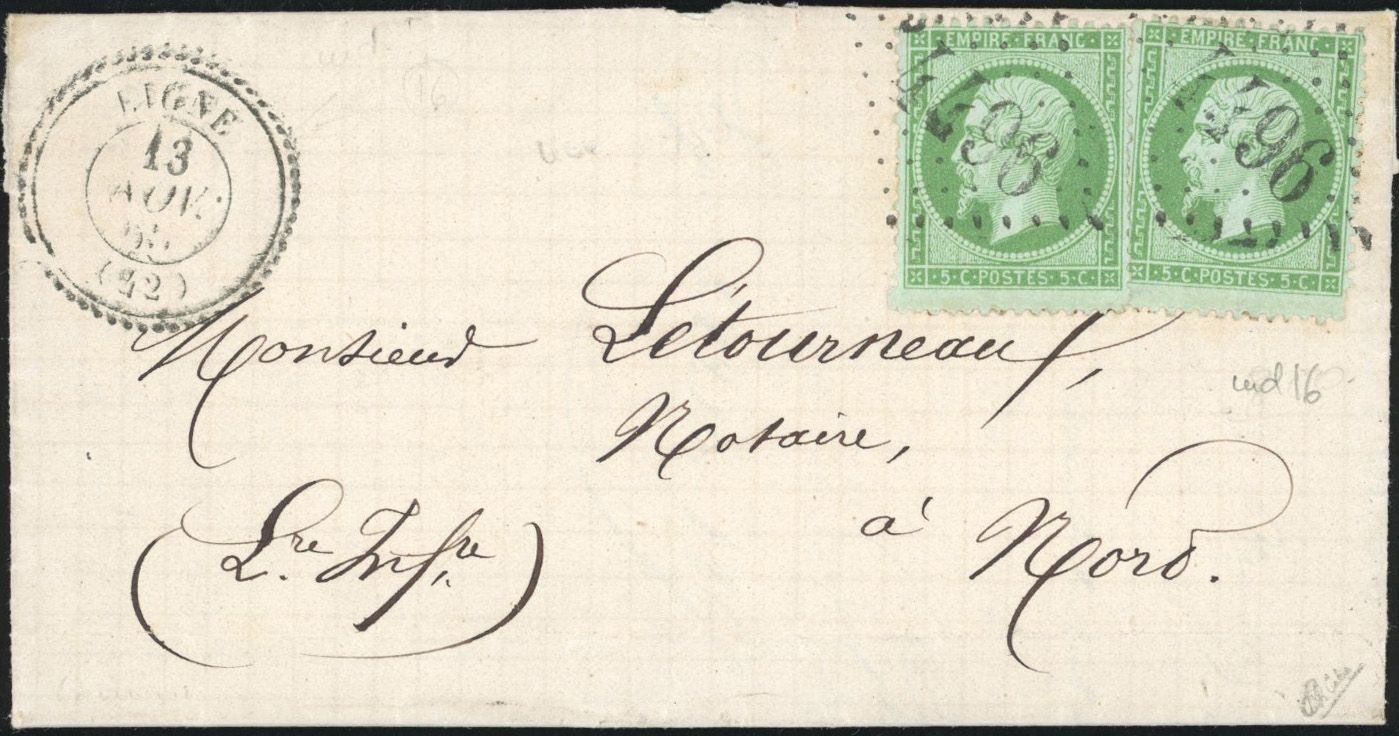 LIGNE
13
NOV.
(42)
EMPIRE FRANC
5·C·POSTES·5·C
EMPIRE FRANC
5·C·POSTES·5·C
Monsieur Létourneau,
Notaire,
à Nord.
(Lre Infre)
ind 16
16